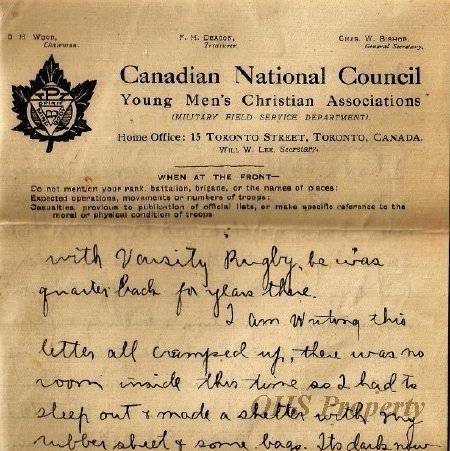 G. H. WOOD,
Chairman.
F. M. DEACON,
Treasurer.
CHAS. W. BISHOP,
General Secretary.
SPIRIT
Canadian National Council
Young Men's Christian Associations
(MILITARY FIELD SERVICE DEPARTMENT).
HOME OFFICE: 15 TORONTO STREET, TORONTO, CANADA.
WILL W. LEE, Secretary.
WHEN AT THE FRONT—
Do not mention your rank, battalion, brigade, or the names of places:
Expected operations, movements or numbers of troops:
Casualties previous to publication of official lists, or make specific reference to the
moral or physical condition of troops
with Varsity Rugby, he was
quarter back for years there.
I am writing this
letter all cramped up, there was no
room inside this time so I had to
sleep out & made a shelter with my
rubber sheet & some bags. Its dark now
QHS Property